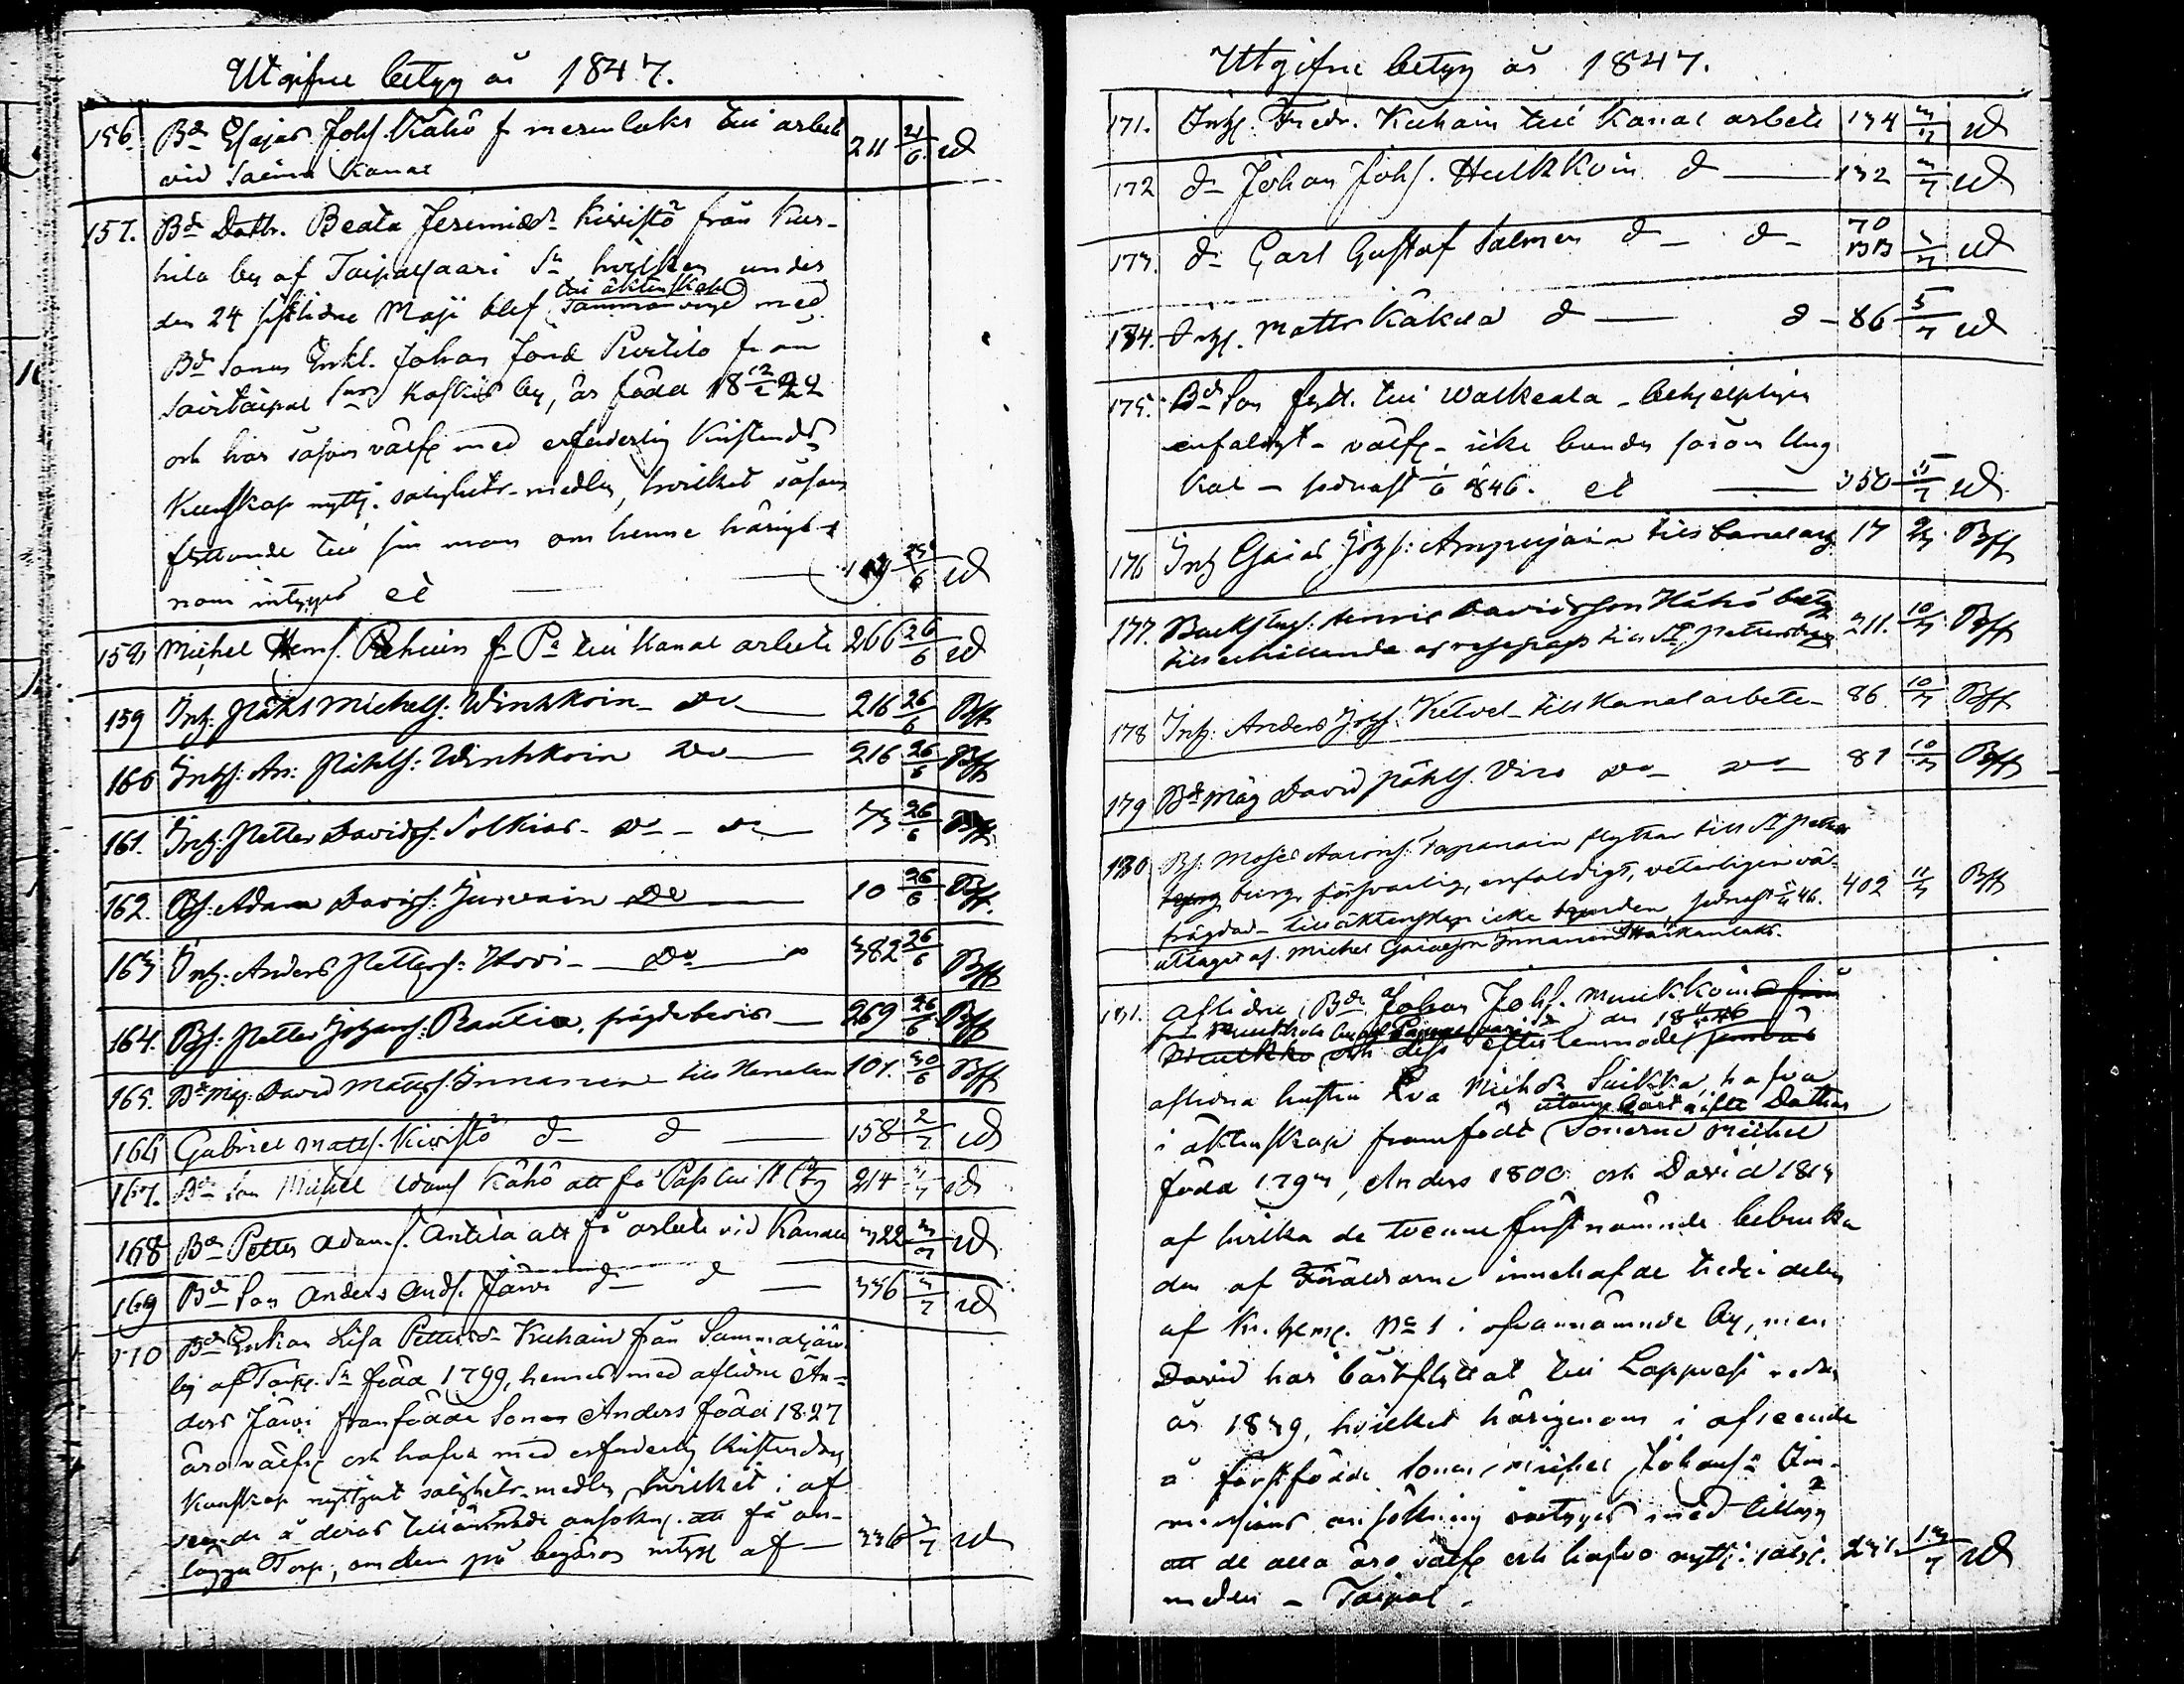 Utgifne betyg år 1847.
156. Bd Esajas Johs. Kähö fr merenlaks till arbete 211 21/6 UD
vid Saima Kanal
157. Bd Dottr. Beata Jeremiæd. Kiristö från Kur-
hila by af Taipalsaari Sn hvilken under
till äktenskap
den 24 sistlidne Maji blef Sammanvigd med
Bd Sonen Enkl. Johan Jord Purtilo från
Savitaipal Sns Kaskis by, är född 18 12/2 22
och har såsom välfr. med erforderlig Kristend.
Kunskap nyttj. salighets-medlen, hvilket såsom
flyttande till sin man om henne härige-
nom intygas et 119 25/6 UD
159 Michel Hens. Pehuin fr Pe till Kanal arbete 266 26/6 UD
159 Inh. Påhl Michels: Winkkoin do 216 26/6 Bff
160 Inhs: An: Påhls: Winkkoin do 216 26/6 Bff
161. Inh: Petter Davids: Solkias do do 73 26/6 Bff
162. Bs: Adam Davids: Jurvain do 10 26/6 Bff.
163 Inh: Anders Petters: Hovi do 382 26/6 Bff
164. Bs: Petter Johans: Rautia, frägdebevis 269 26/6 Bff
165. Bd Måg: David Matts: Innanen till Kanalen 101. 30/6 Bff
166 Gabriel Matts. Kiristö d d 158 2/7 UD
167. Bd Son Michel Adams Kähö att få Pass till St Pbg 214 3/7 UD
168 Bd Petter Adams. Antila att få arbete vid Kanalen 322 3/7 UD
169 Bd Son Anders Ands. Järvi d d 336 3/7 UD
170 Bd Enkan Lisa Pettersd. Kuhain från Sammaljärvi
by af Taip. Sn född 1799, hennes med aflidne An-
ders Järvi framfödde Sonen Anders född 1827
äro välfr. och hafva med erforderlig Kristendoms
Kunskap nyttjat salighets-medlen, hvilket i af
seende å deras tillämnade ansökng. att få an-
lägga Torp, om dem på begäran intyg. af 336 3/7 UD
Utgifne betyg år 1847.
171. Inh. Fredr. Kuhain till Kanal arbete 134 3/7 UD
172 d Johan Johs. Hulkkoin d 132 3/7 UD
173. d Carl Gustaf Salmen d d 70 BB 3/7 UD
184. Inh. Matts Käkelä d d 86 5/7 UD
175. Bd Son flytt. till Walkeala - behjelpligen
enfaldigt - välfr. - icke bunden såsom Ung
Kal - sednast 1/6 1846. et 350 5/7 UD
176 Inh Johs: Ampujain till Canal arb. 17 Bff
177. Davidsson Kähö betyg
till erhållande af respass till St Petersburg 211. 10/7 Bff
178 Inh: Anders Johs. Kitvel till Kanal arbete 86 10/7 Bff
179 Bd Måg David Påhls. Viro do do 81 10/7 Bff
180 Bs: Moses Aarons: Tapanain flyttar till St Peters
burg, försvarlig, enfaldigt, veterligen väl-
frägdad - till äktenskap icke bunden, sednast 46. 402 11/7 Bff
uttaget af Michel Innanen Haikanlaks.
181. Aflidne, Bd. Johan Johs. Munkkoin från
den 18
Munkko och dess efterlemnade
aflidna hustru Eva Michd. Suikka, hafva
utom bort gifte Dottrar
i äktenskap framfödt Sönerne Michel
född 1797, Anders 1800 och David 1813
af hvilka de tvenne först nämnde bebruka
den af Föräldrarne innehafde tredje delen
af Kr. hem. No 1 i ofvannämnde by, men
David har bortflyttat till Lappvesi redan
år 1839, hvilket härigenom i afseende
å förstfödde Sonen Michel Johans. Im-
missions ansökning betygas med tillägg
att de alla äro välfr. och hafva nyttj. salig. 231 13/7 UD
medlen - Taipal.